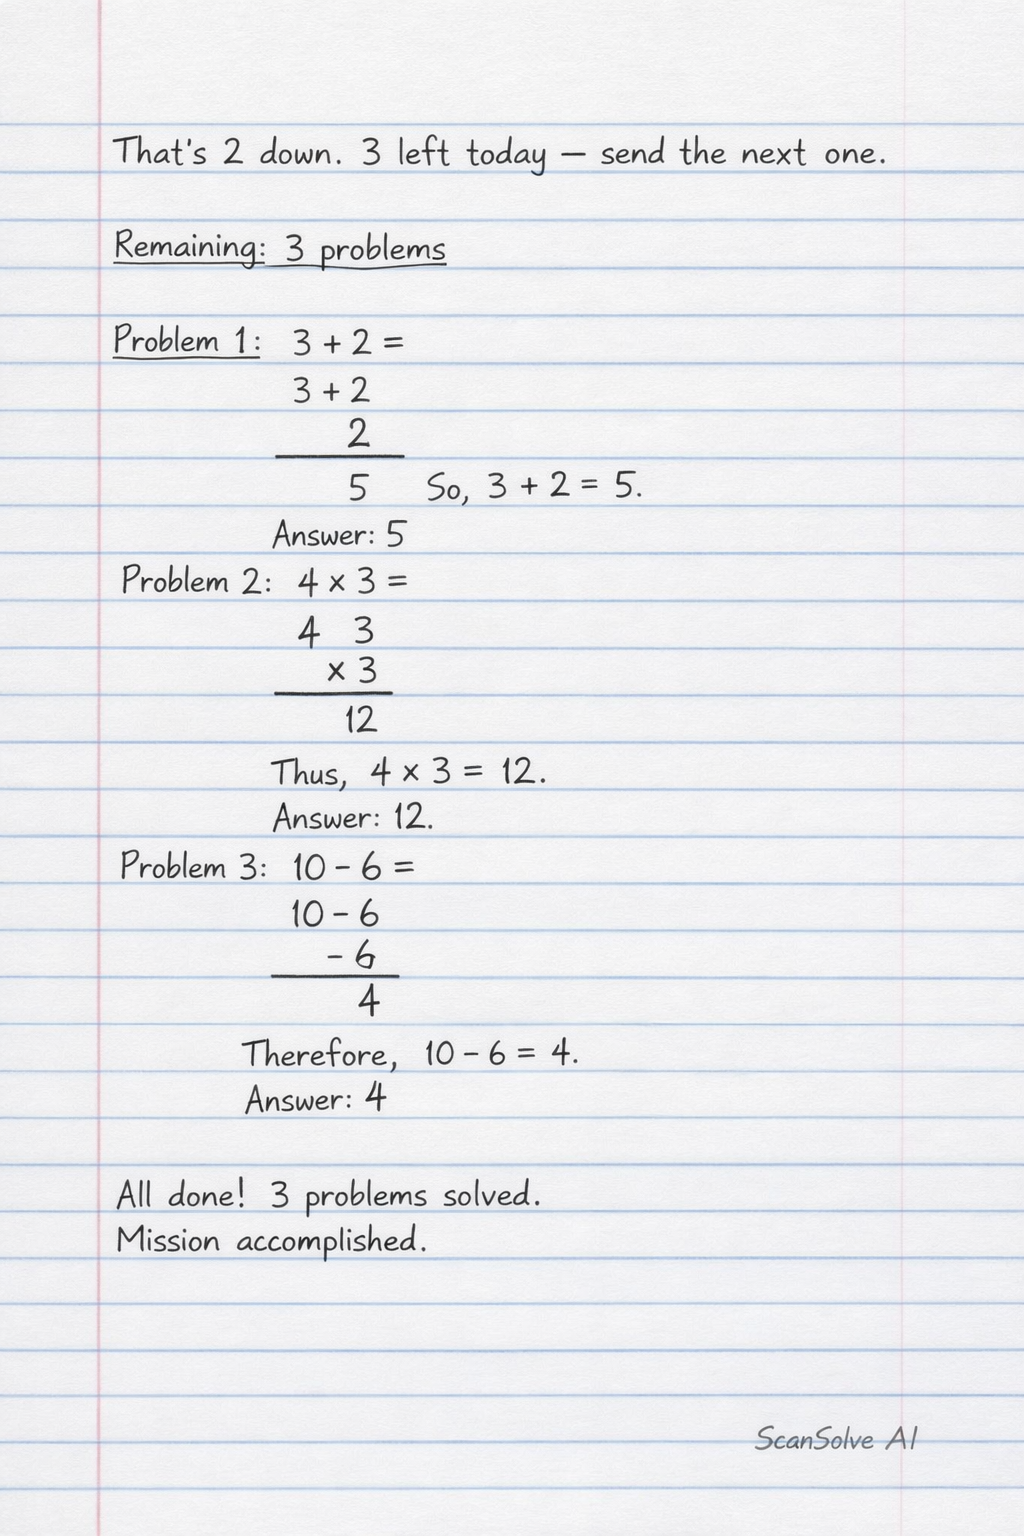 That's 2 down. 3 left today — send the next one.
Remaining: 3 problems
Problem 1: 3 + 2 =
3 + 2
2
5 So, 3 + 2 = 5.
Answer: 5
Problem 2: 4 x 3 =
4 3
x 3
12
Thus, 4 x 3 = 12.
Answer: 12.
Problem 3: 10 - 6 =
10 - 6
- 6
4
Therefore, 10 - 6 = 4.
Answer: 4
All done! 3 problems solved.
Mission accomplished.
ScanSolve AI